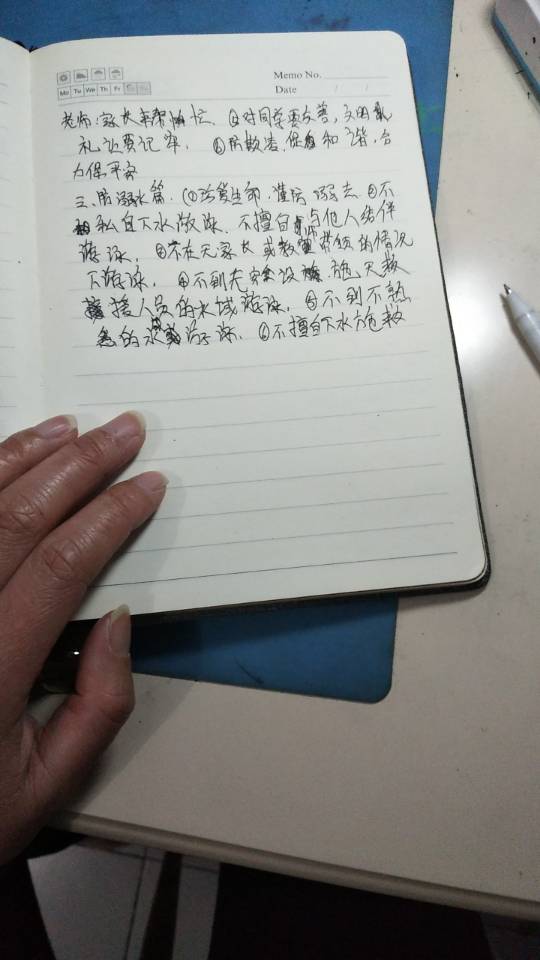 Memo No.
Mo Tu We Th Fr
Date / /
老师:家长来帮忙. ⑤对同学要友善,文明
礼让要记牢. ⑥防欺凌,促和谐,合
力保平安
三.防溺水篇.①珍爱生命.谨防溺去②不
私自下水游泳.不擅自与他人结伴
游泳.③不在无家长或教师带领的情况
下游泳.④不到无安全设施.无救
援人员的水域游泳.⑤不到不熟
悉的水域游泳.⑥不擅自下水施救